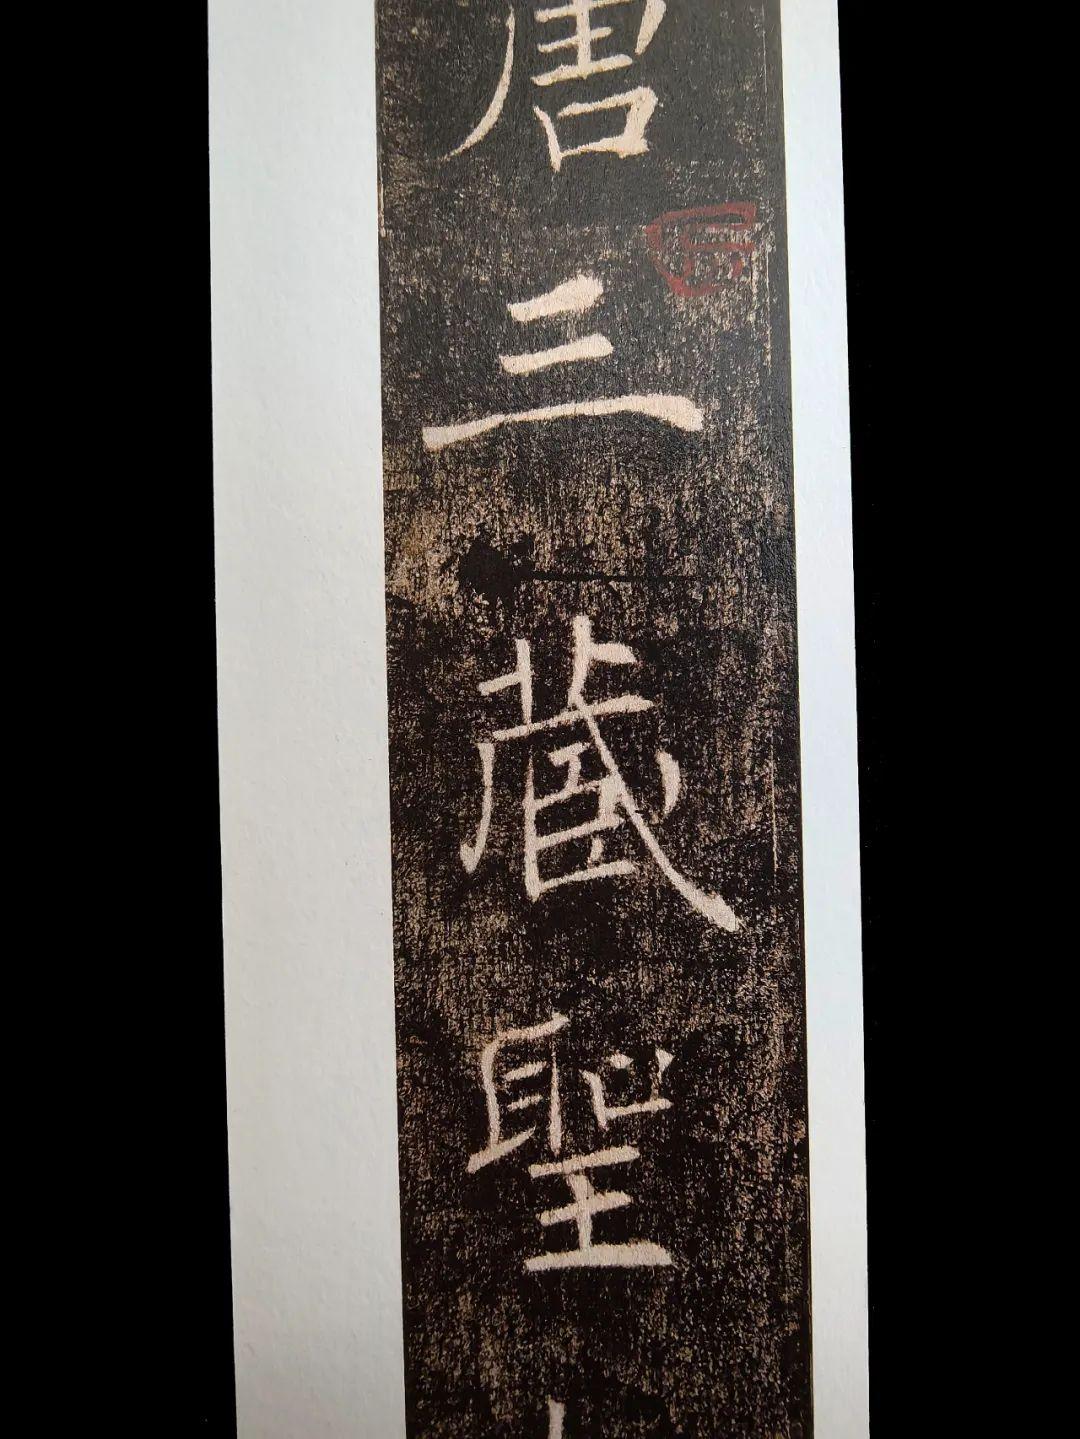 唐三藏聖